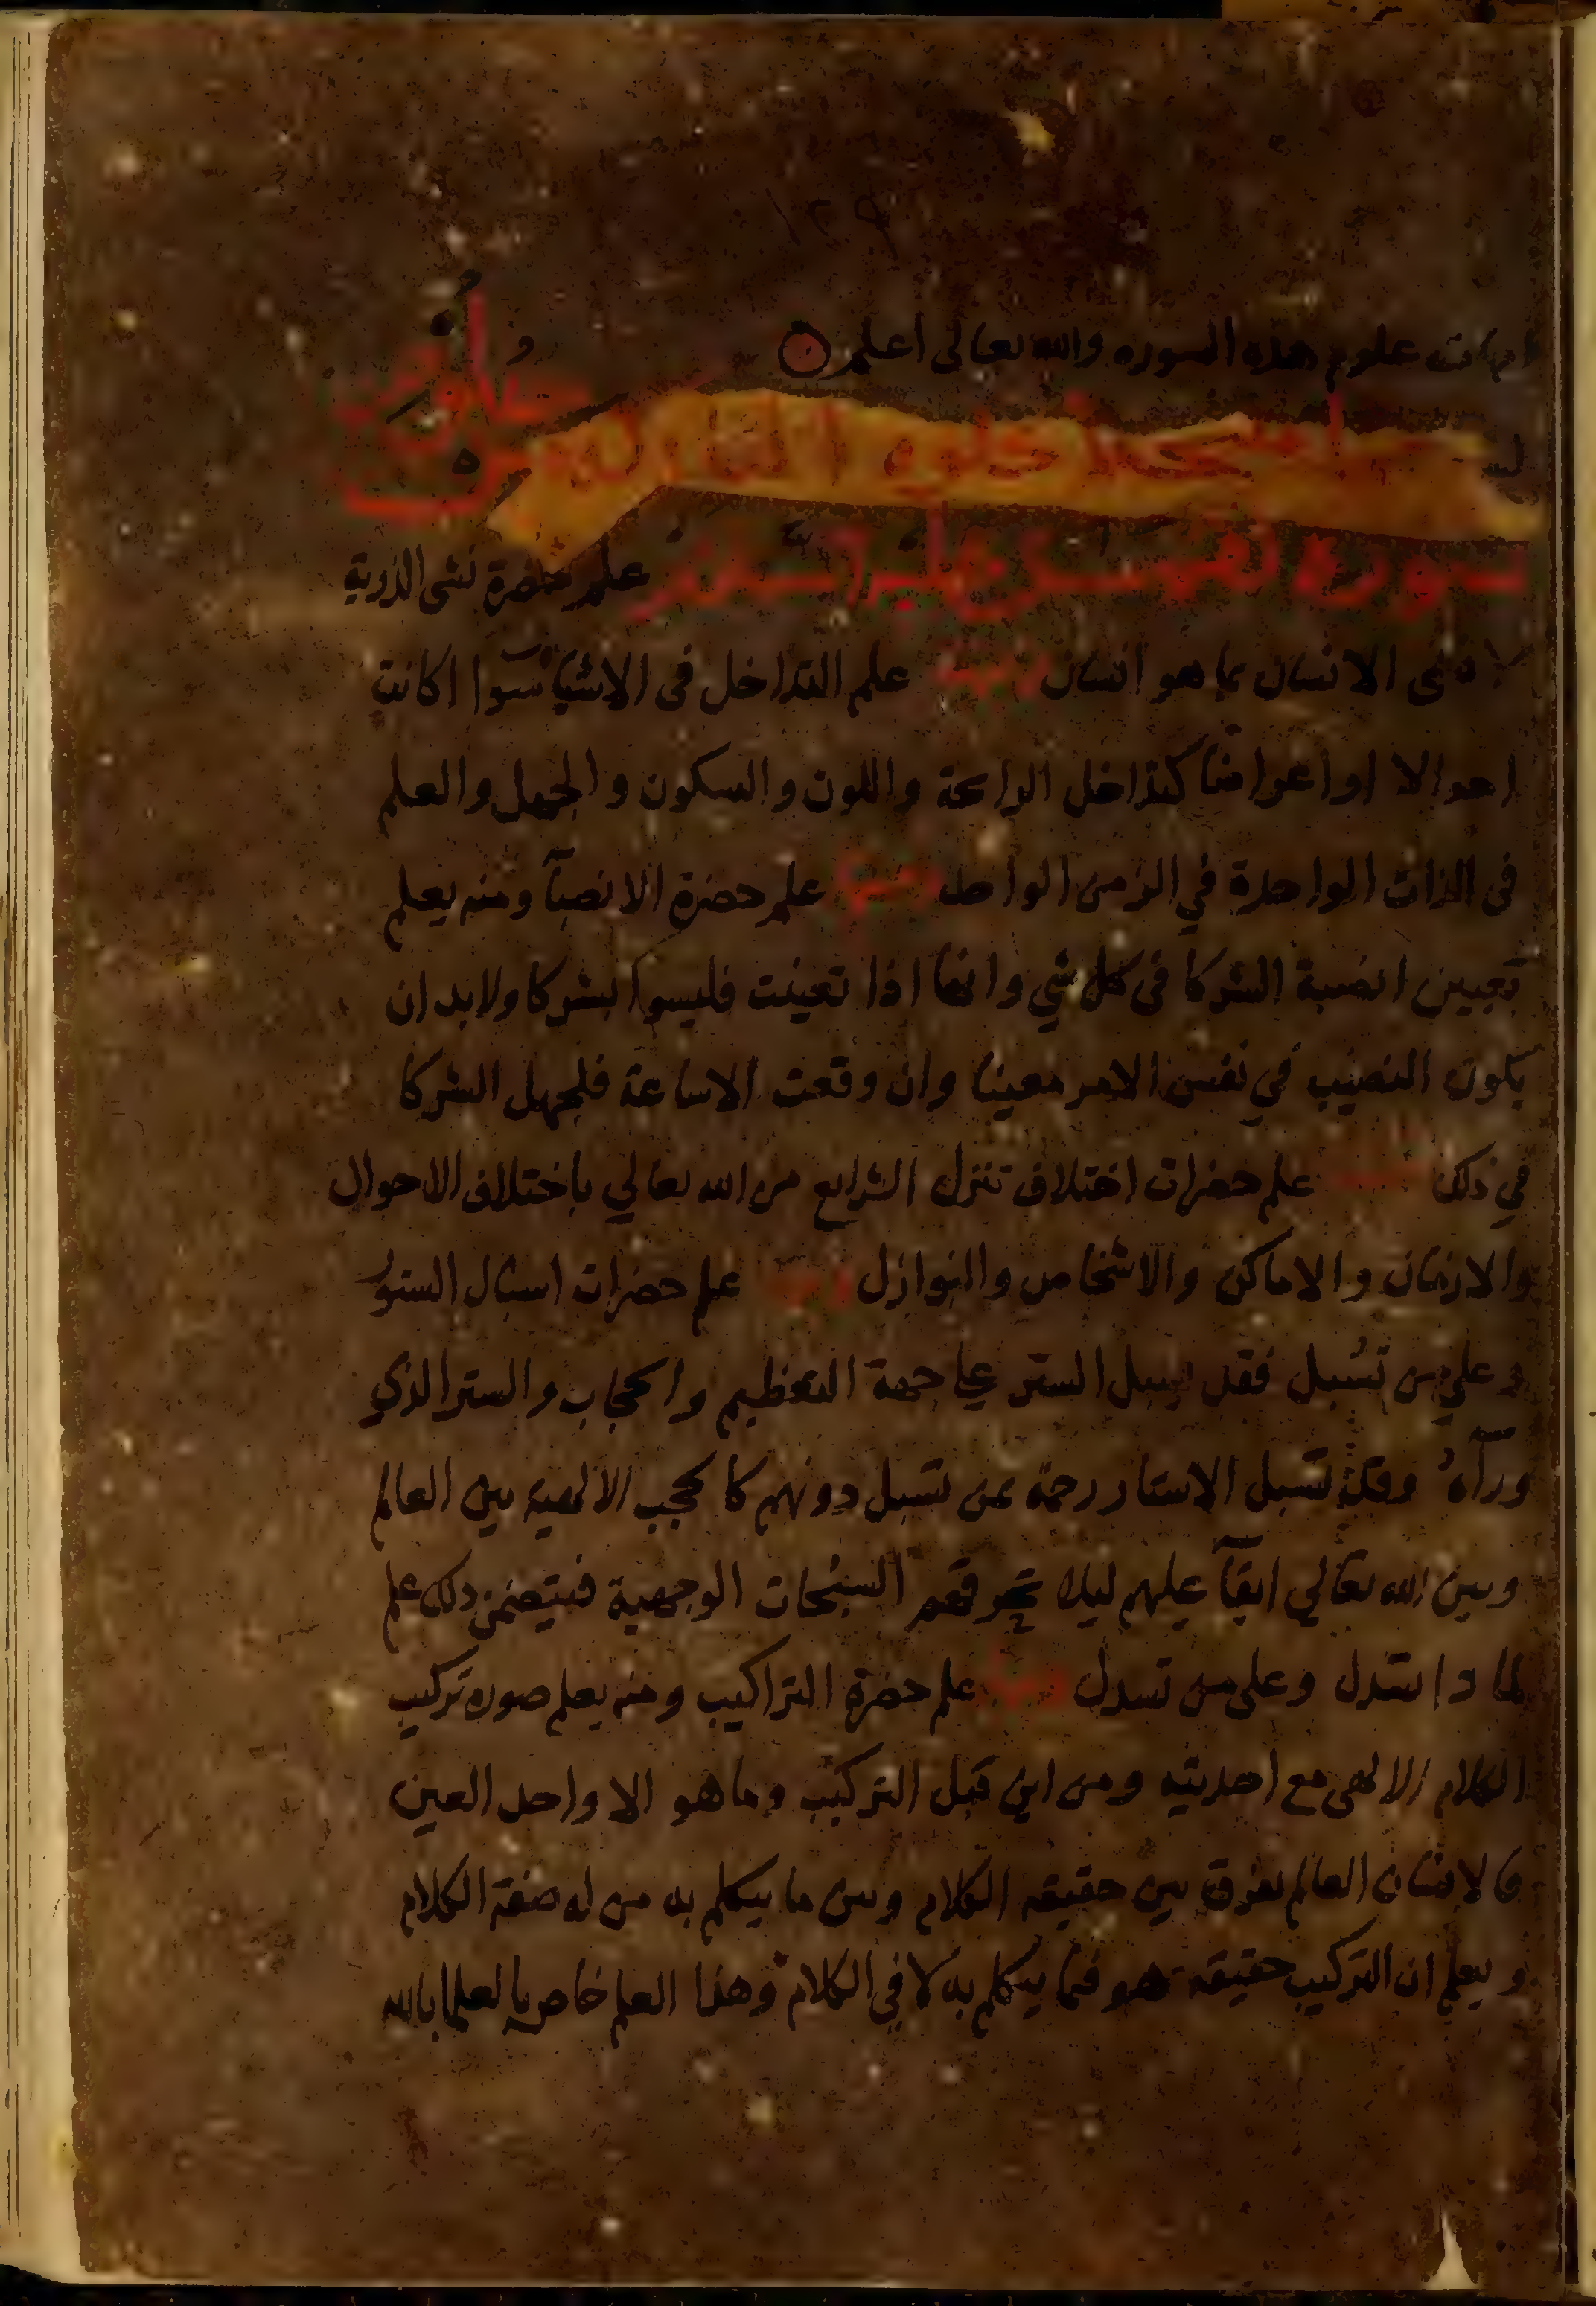 ١٢٩
علوم هذه السوره والله تعالى اعلم
سورة علم حضرة نشى الذرية
فى الانسان بما هو انسان ومنها علم التداخل فى الاشيا سوا اكانت
او اعراضا كتداخل الرايحة واللون والسكون والجهل والعلم
فى الذات الواحدة في الزمن الواحد ومنها علم حضرة الانصبآ ومنه يعلم
تعيين انصبة الشركا فى كل شي وانها اذا تعينت فليسوا بشركا ولابد ان
يكون النصيب في نفس الامر معينا وان وقعت الاشاعة فلجهل الشركا
في ذلك ومنها علم حضرات اختلاف تنزل الشرايع من الله تعالي باختلاف الاحوال
والازمان والاماكن والاشخاص والنوازل ومنها علم حضرات اسبال الستور
وعلي من تسبل فقد يسبل الستر علي جهة التعظيم والحجاب والستر الذي
ورآه وقد تسبل الاستار رحمة بمن تسبل دونهم كالحجب الالهيه بين العالم
وبين الله تعالي ابقآ عليهم ليلا تحرقهم السبحات الوجهية فيتضمن ذلك علم
لما دا تسدل وعلى من تسدل ومنها علم حضرة التراكيب ومنه يعلم صوره تركيب
الكلام الالهى مع احديته ومن اين قبل التركيب وما هو الا واحد العين
فالانسان العالم يفرق بين حقيقه الكلام وبين ما يتكلم به من له صفة الكلام
ويعلم ان التركيب حقيقة هو فيما يتكلم به لا في الكلام وهذا العلم خاص بالعلما بالله